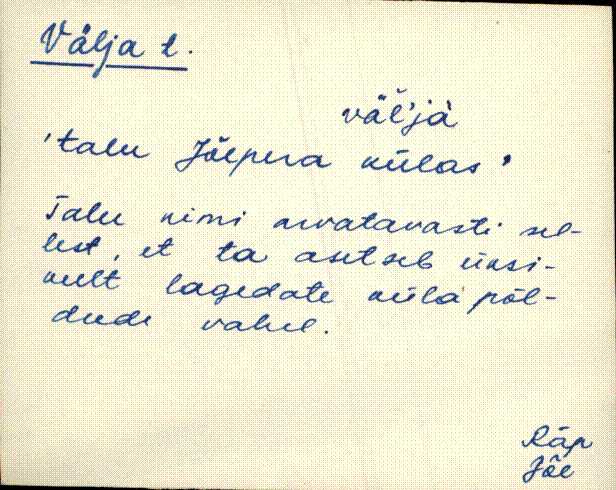 Välja t.
väl'jà
'talu Jõepera külas'
Talu nimi arvatavasti sel-
lest, et ta asetseb üksi-
kult lagedate küla põl-
dude vahel.
Räp
Jõe